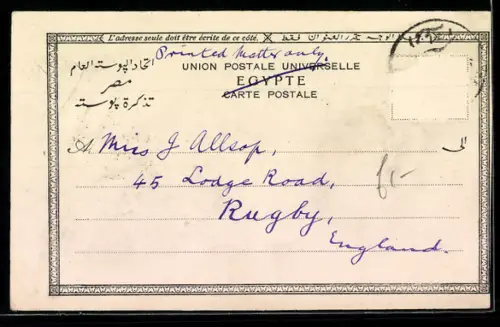 L'adresse seule doit être écrite de ce côté. الوجه محرر العنوان فقط
Printed Matter only.
اتحاد البوستة العام
UNION POSTALE UNIVERSELLE
مصر
EGYPTE
تذكرة بوسته
CARTE POSTALE
A Miss J Allsop, الى
45 Lodge Road,
Rugby,
England.